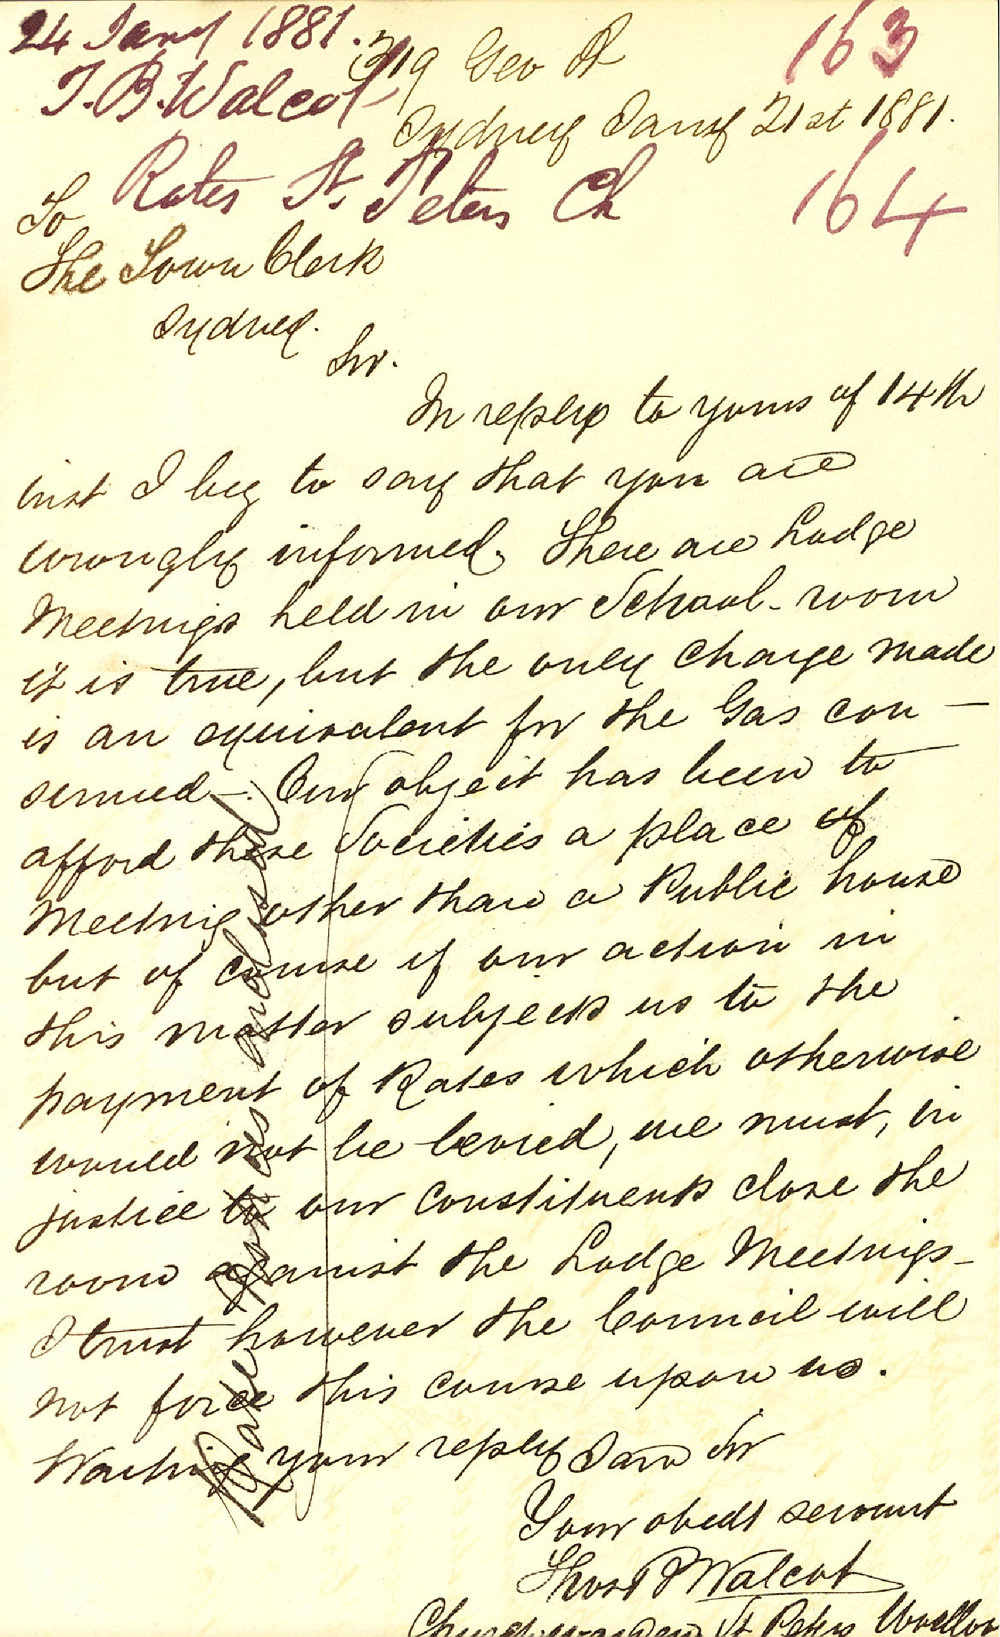 24 Jany 1881.
T. B. Walcot
Rates St. Peters Ch
163
164
319 Geo St
Sydney Jany 21st 1881.
To
The Town Clerk
Sydney.
Sir.
In reply to yours of 14th
inst I beg to say that you are
wrongly informed. There are Lodge
Meetings held in our School-room
it is true, but the only charge made
is an equivalent for the Gas con-
sumed-. Our object has been to
afford these Societies a place of
Meeting other than a Public house
but of course if our action in
this matter subjects us to the
payment of Rates which otherwise
would not be levied, we must, in
justice to our constituents close the
room against the Lodge Meetings-
I trust however the Council will
not force this course upon us.
Waiting your reply I am Sir
Your obedt servant
Thos B Walcot
Churchwarden St Peters